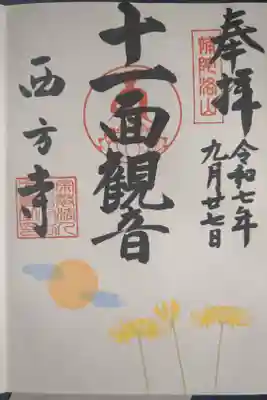 奉拝
補陀洛山
令和七年
九月廿七日
十一面観音
西方寺